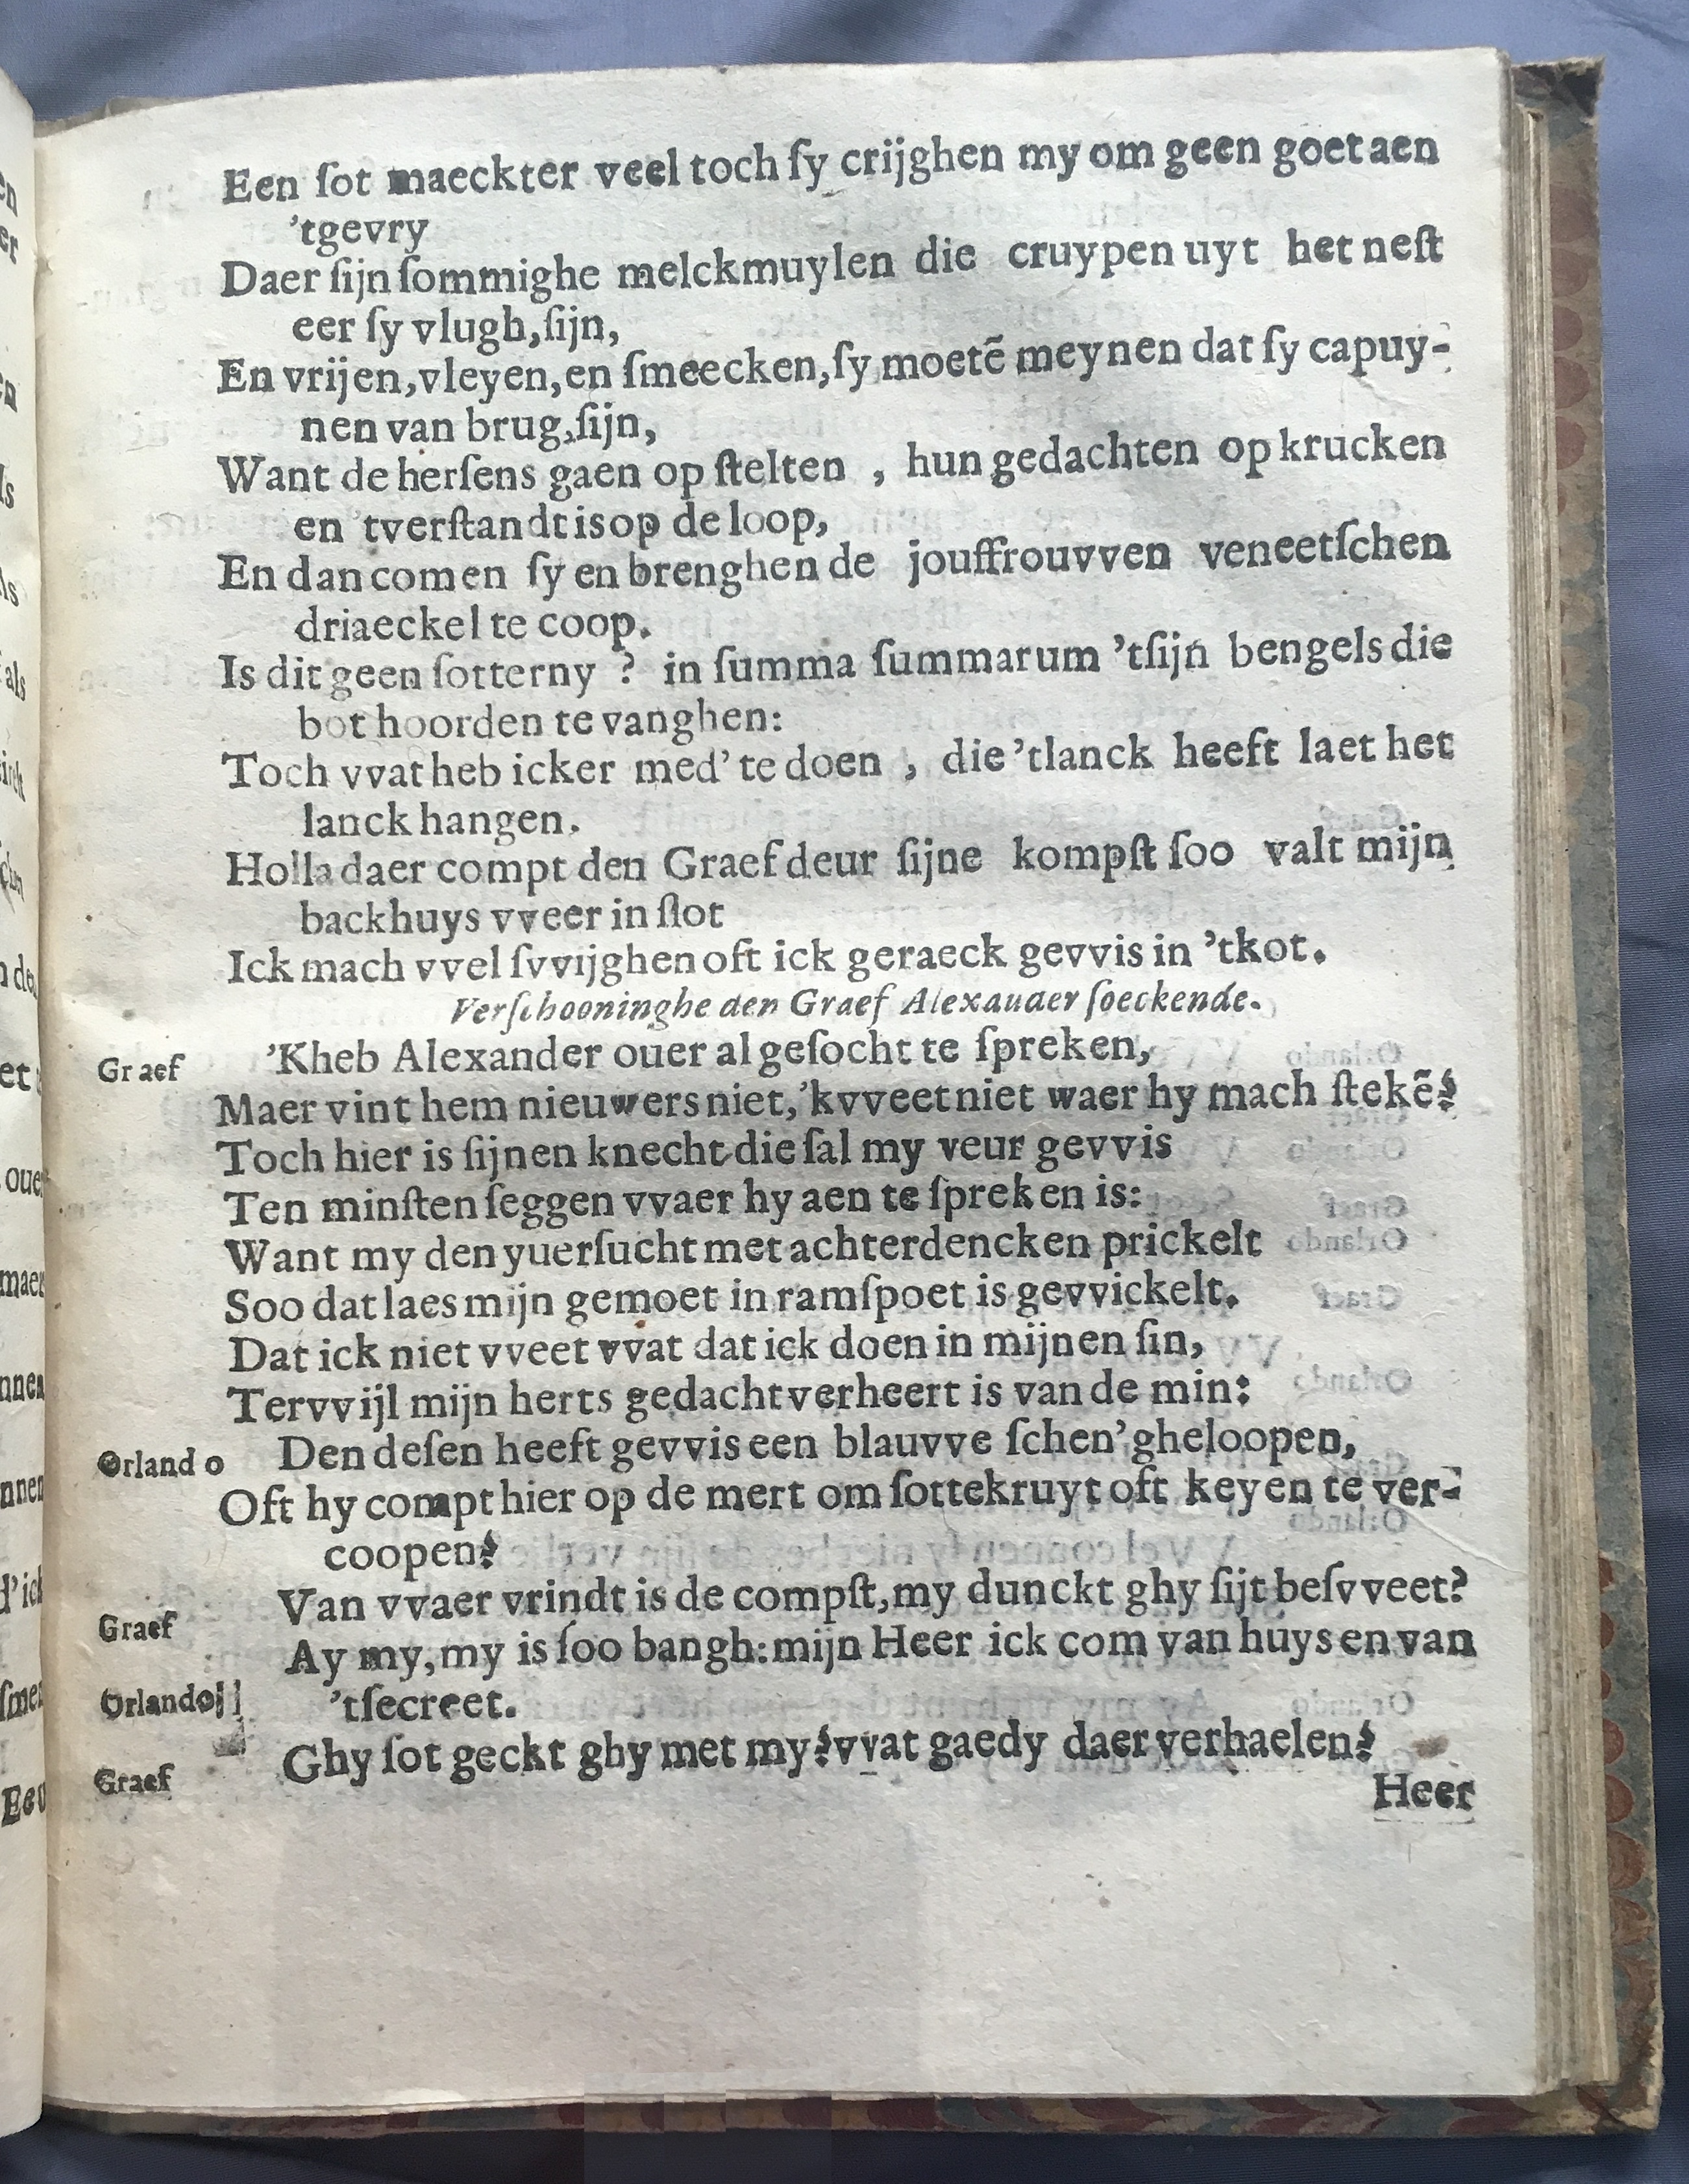 Een ſot maeckter veel toch ſy crijghen my om geen goet aen
'tgevry
Daer ſijn ſommighe melckmuylen die cruypen uyt het neſt
eer ſy vlugh, ſijn,
En vrijen, vleyen, en ſmeecken, ſy moetẽ meynen dat ſy capuy-
nen van brug, ſijn,
Want de herſens gaen op ſtelten , hun gedachten op krucken
en 'tverſtandt is op de loop,
En dan comen ſy en brenghen de jouffrouvven veneetſchen
driaeckel te coop.
Is dit geen ſotterny ? in ſumma ſummarum 'tſijn bengels die
bot hoorden te vanghen:
Toch vvat heb icker med' te doen , die 'tlanck heeft laet het
lanck hangen.
Holla daer compt den Graef deur ſijne kompſt ſoo valt mijn
backhuys vveer in ſlot
Ick mach vvel ſvvijghen oft ick geraeck gevvis in 'tkot.
Verſchooninghe den Graef Alexander ſoeckende.
Graef 'Kheb Alexander ouer al geſocht te ſpreken,
Maer vint hem nieuwers niet, 'kvveet niet waer hy mach ſtekẽ?
Toch hier is ſijnen knecht die ſal my veur gevvis
Ten minſten ſeggen vvaer hy aen te ſpreken is:
Want my den yuerſucht met achterdencken prickelt
Soo dat laes mijn gemoet in ramſpoet is gevvickelt.
Dat ick niet vveet vvat dat ick doen in mijnen ſin,
Tervvijl mijn herts gedacht verheert is van de min:
Orland o Den deſen heeft gevvis een blauvve ſchen' gheloopen,
Oft hy compt hier op de mert om ſottekruyt oft keyen te ver-
coopen?
Graef Van vvaer vrindt is de compſt, my dunckt ghy ſijt beſvveet?
Orlando Ay my, my is ſoo bangh: mijn Heer ick com van huys en van
'tſecreet.
Graef Ghy ſot geckt ghy met my? vvat gaedy daer verhaelen?
Heer